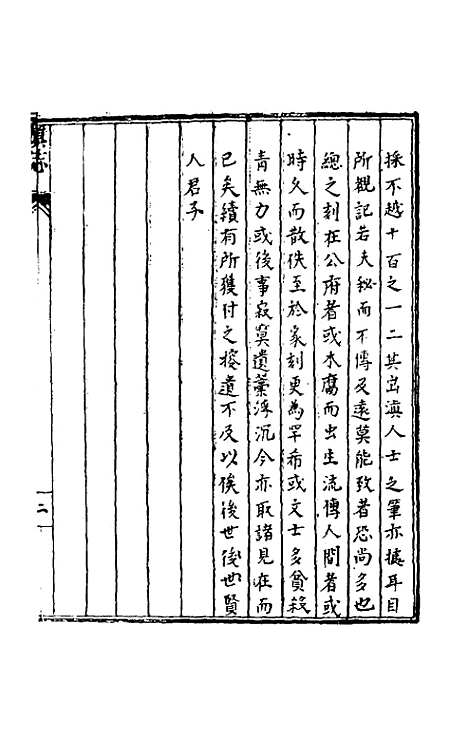 採不越十百之一二其出滇人士之筆亦據耳目
所覩記若夫秘而不傳及遠莫能致者恐尚多也
總之刻在公府者或木腐而虫生流傳人間者或
時久而散佚至於家刻更為罕希或文士多貧殺
青無力或後事寂寞遺藁浮沉今亦取諸見在而
已矣續有所獲付之搜遺不及以俟後世後世賢
人君子
滇志
二